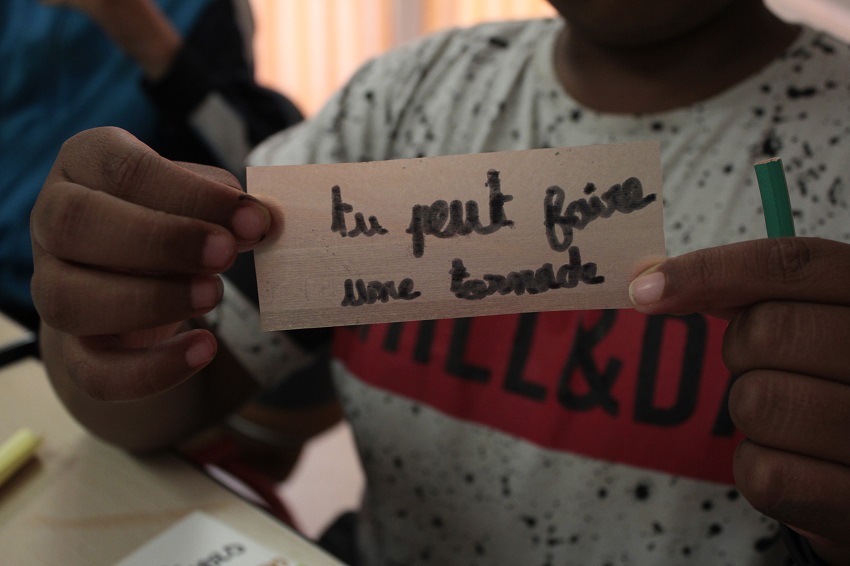 tu peut faire
une tornade